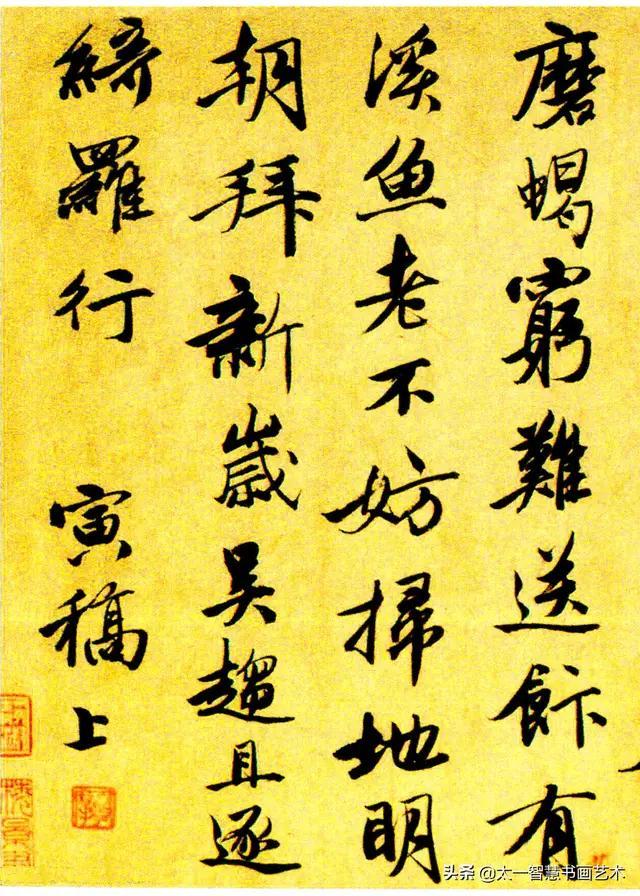 磨蝎窮難送飰有
溪魚老不妨掃地明
朝拜新歲吳趨且逐
綺羅行 寅稿上
头条 @太一智慧书画艺术